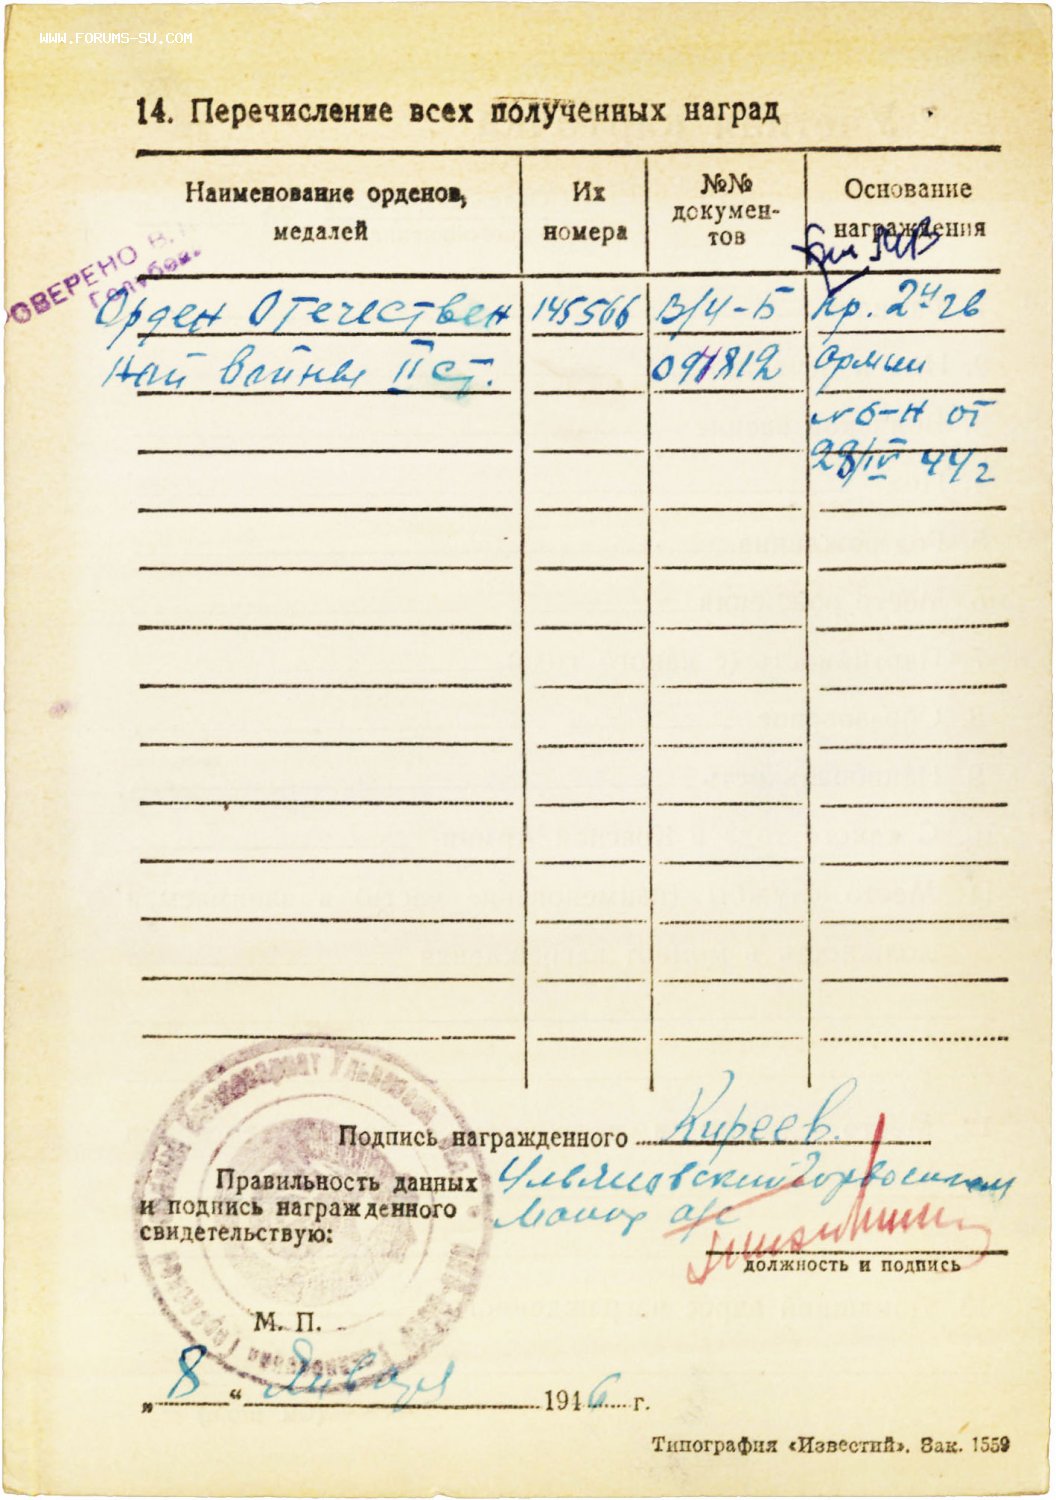 WWW.FORUMS-SU.COM
14. Перечисление всех полученных наград
Наименование орденов, медалей
Их номера
№№ докумен-тов
Основание награждения
ОВЕРЕНО В.
Орден Отечествен 145566 В/Ч-Б Пр. 2й гв
ной войны II ст. армии
№ 6-Н от
28/IV 44 г
Подпись награжденного Киреев.
Правильность данных
и подпись награжденного
свидетельствую:
Ульяновский Горвоенком
Майор а/с
должность и подпись
М. П.
„8“ Января 1946 г.
Типография «Известий». Зак. 1559